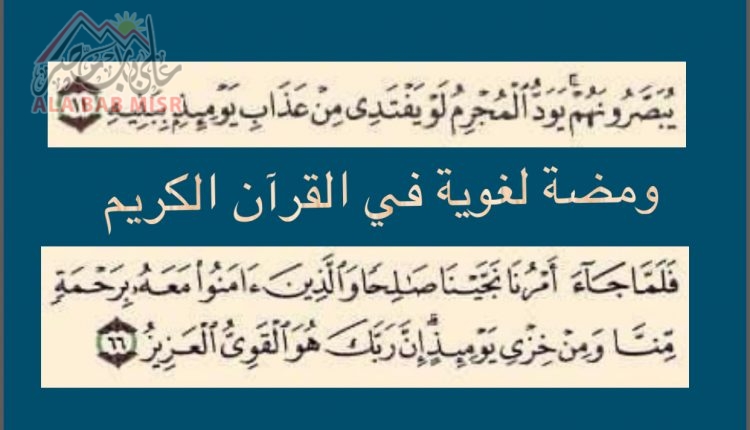 على باب مصر
ALA BAB MISR
يُبَصَّرُونَهُمْ ۚ يَوَدُّ ٱلْمُجْرِمُ لَوْ يَفْتَدِى مِنْ عَذَابِ يَوْمِئِذٍۭ بِبَنِيهِ ١١
ومضة لغوية في القرآن الكريم
فَلَمَّا جَآءَ أَمْرُنَا نَجَّيْنَا صَٰلِحًا وَٱلَّذِينَ ءَامَنُوا۟ مَعَهُۥ بِرَحْمَةٍ
مِّنَّا وَمِنْ خِزْىِ يَوْمِئِذٍ ۗ إِنَّ رَبَّكَ هُوَ ٱلْقَوِىُّ ٱلْعَزِيزُ ٦٦